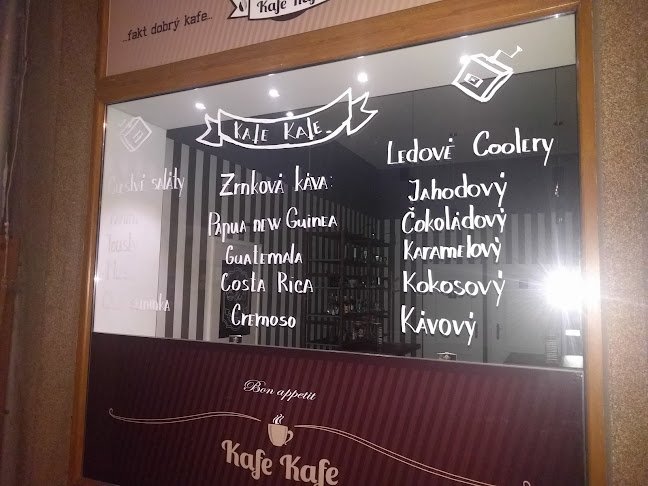 ...fakt dobrý kafe...
Kafe
Kafe Kafe
saláty
Zrnková káva:
Papua new Guinea
Guatemala
Costa Rica
Cremoso
Ledové Coolery
Jahodový
Čokoládový
Karamelový
Kokosový
Kávový
Bon appetit
Kafe Kafe